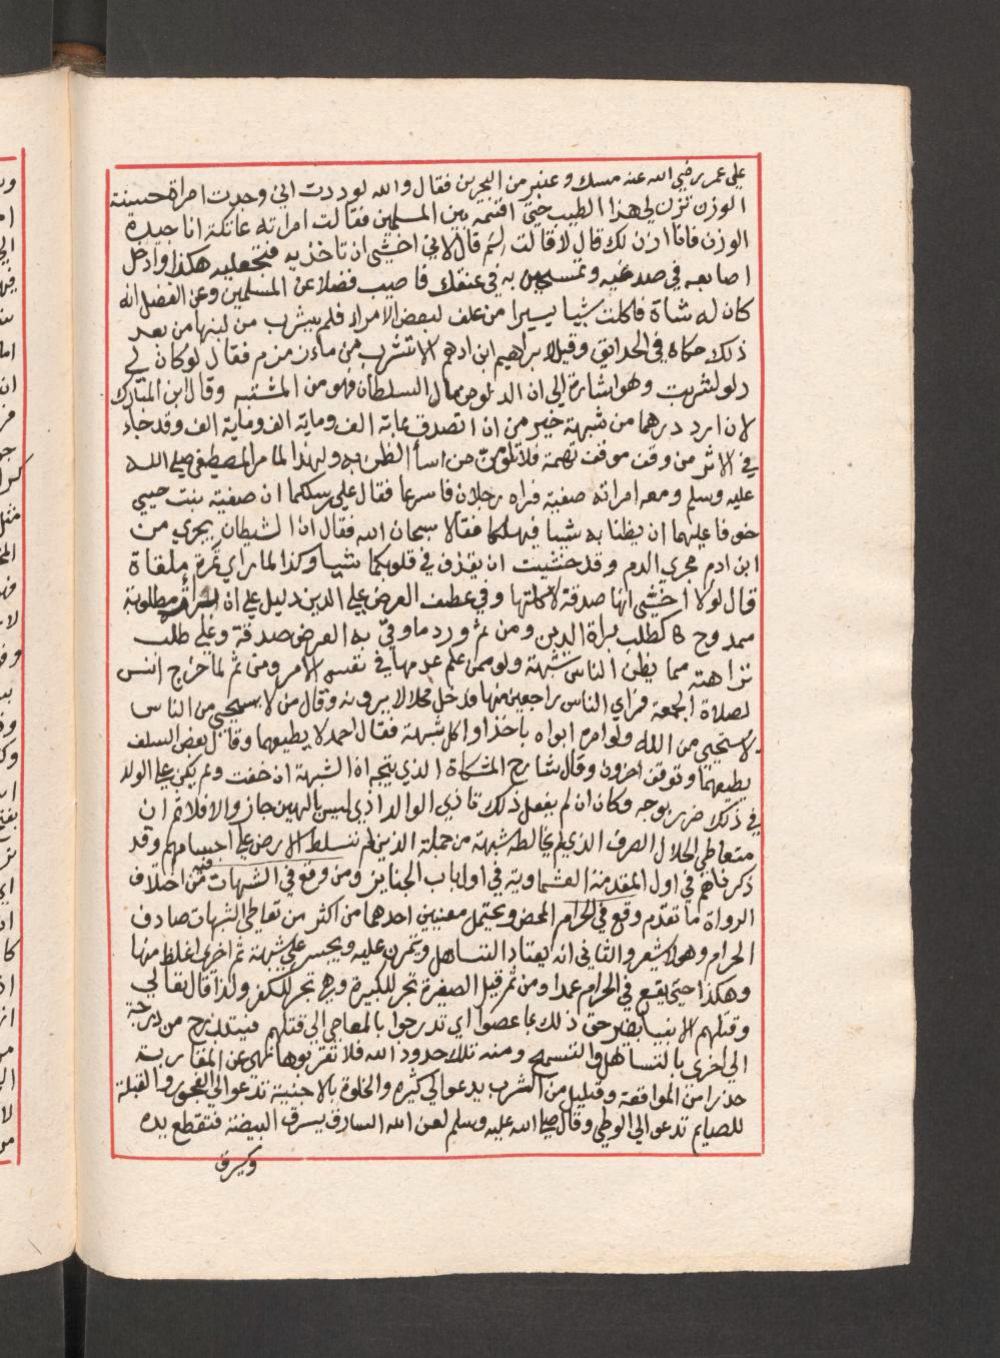 على عمر رضي الله عنه مسك وعنبر من البحرين فقال والله لوددت اني وجدت امراة حسنة
الوزن تزن لي هذا الطيب حتى اقسمه بين المسلمين فقالت امراته عاتكة انا جيدة
الوزن فانا ازن لك قال لا قالت لم قال لاني اخشى ان تاخذيه فتجعليه هكذا وادخل
اصابعه في صدغيه وتمسحين به في عنقك فاصيب فضلا عن المسلمين وعن الفضل انه
كان له شاة فاكلت شيا يسيرا من علف لبعض الامراء فلم يشرب من لبنها من بعد
ذلك حكاه في الحدايق وقيل لابراهيم ابن ادهم الا تشرب من ماء زمزم فقال لو كان لي
دلو لشربت وهو اشارة الى ان الدلو من مال السلطان فهو من المشتبه وقال ابن المبارك
لان ارد درهما من شبهة خير من ان اتصدق بماية الف وماية الف وماية الف وقد جاء
في الاثر من وقف موقف تهمة فلا يلومن من اسأ الظن به ولهذا لما مر المصطفى صلى الله
عليه وسلم ومعه امراته صفية فراه رجلان فاسرعا فقال على رسلكما ان صفية بنت حيي
خوفا عليهما ان يظنا به شيا فيهلكا فقالا سبحان الله فقال ان الشيطان يجري من
ابن ادم مجري الدم وقد خشيت ان يقذف في قلوبكما شيا وكذا لما راي تمرة ملقاة
قال لولا اخشى انها صدقة لاكلتها وفي عطف العرض على الدين دليل على ان مطلوبة
ممدوح كا كطلب براة الدين ومن ثم ورد ما وقي به العرض صدقة وعلى طلب
نزاهته مما يظن الناس شبهة ولو ممن علم عدمها في نفس الامر ومن ثم لما خرج انس
لصلاة الجمعة فراي الناس راجعين منها فدخل محلا لا يرونه وقال من لا يستحيي من الناس
لا يستحيي من الله ولو امره ابواه باخذ او اكل شبهة فقال احمد لا يطيعهما وقال بعض السلف
يطيعهما وتوقف اخرون وقال شارح المشكاة الذي يتجه ان الشبهة ان خفت ولم يكن على الولد
في ذلك ضرر بوجه وكان ان لم يفعل ذلك تاذي الوالد اذي ليس بالهين جاز والا فلا ثم ان
متعاطي الحلال الصرف الذي لم يخالطه شبهة من جملة الذين لم تتسلط الارض على اجسامهم وقد
ذكرناهم في اول المقدمة العشماوية في اول باب الجنايز ومن وقع في الشبهات فيه من اختلاف
الرواة ما تقدم وقع في الحرام المحض ويحتمل معنيين احدهما من اكثر من تعاطي الشبهات صادف
الحرام وهو لا يشعر والثاني انه يعتاد التساهل ويتمرن عليه ويجسر على شبهة ثم اخرى اغلظ منها
وهكذا حتى يقع في الحرام عمدا ومن ثم قيل الصغيرة تجر للكبيرة وهي تجر للكفر ولذا قال تعالى
وقتلهم الانبيا بغير حق ذلك بما عصوا اي تدرجوا بالمعاصي الى قتلهم فيتدرج من درجة
الى اخرى بالتساهل والتسمح ومنه تلك حدود الله فلا تقربوها نهى عن المقاربة
حذرا من المواقعة وقليل من الشرب يدعو الى كثيره والخلوة بالاجنبية تدعو الى الفجور والقبلة
للصايم تدعو الى الوطي وقال صلى الله عليه وسلم لعن الله السارق يسرق البيضة فتقطع يده
ويسرق